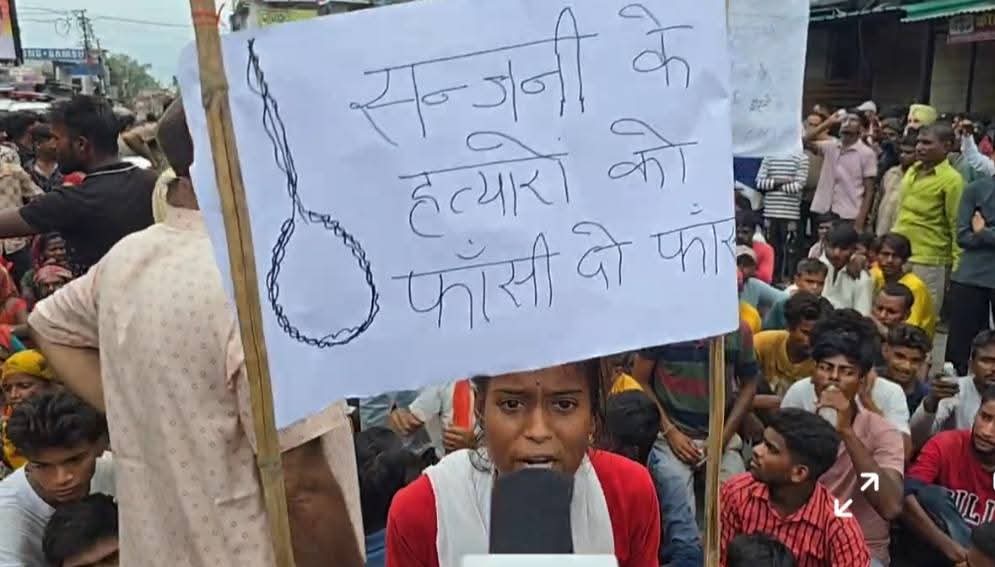 सन्जनी के
हत्यारों को
फाँसी दो फांस